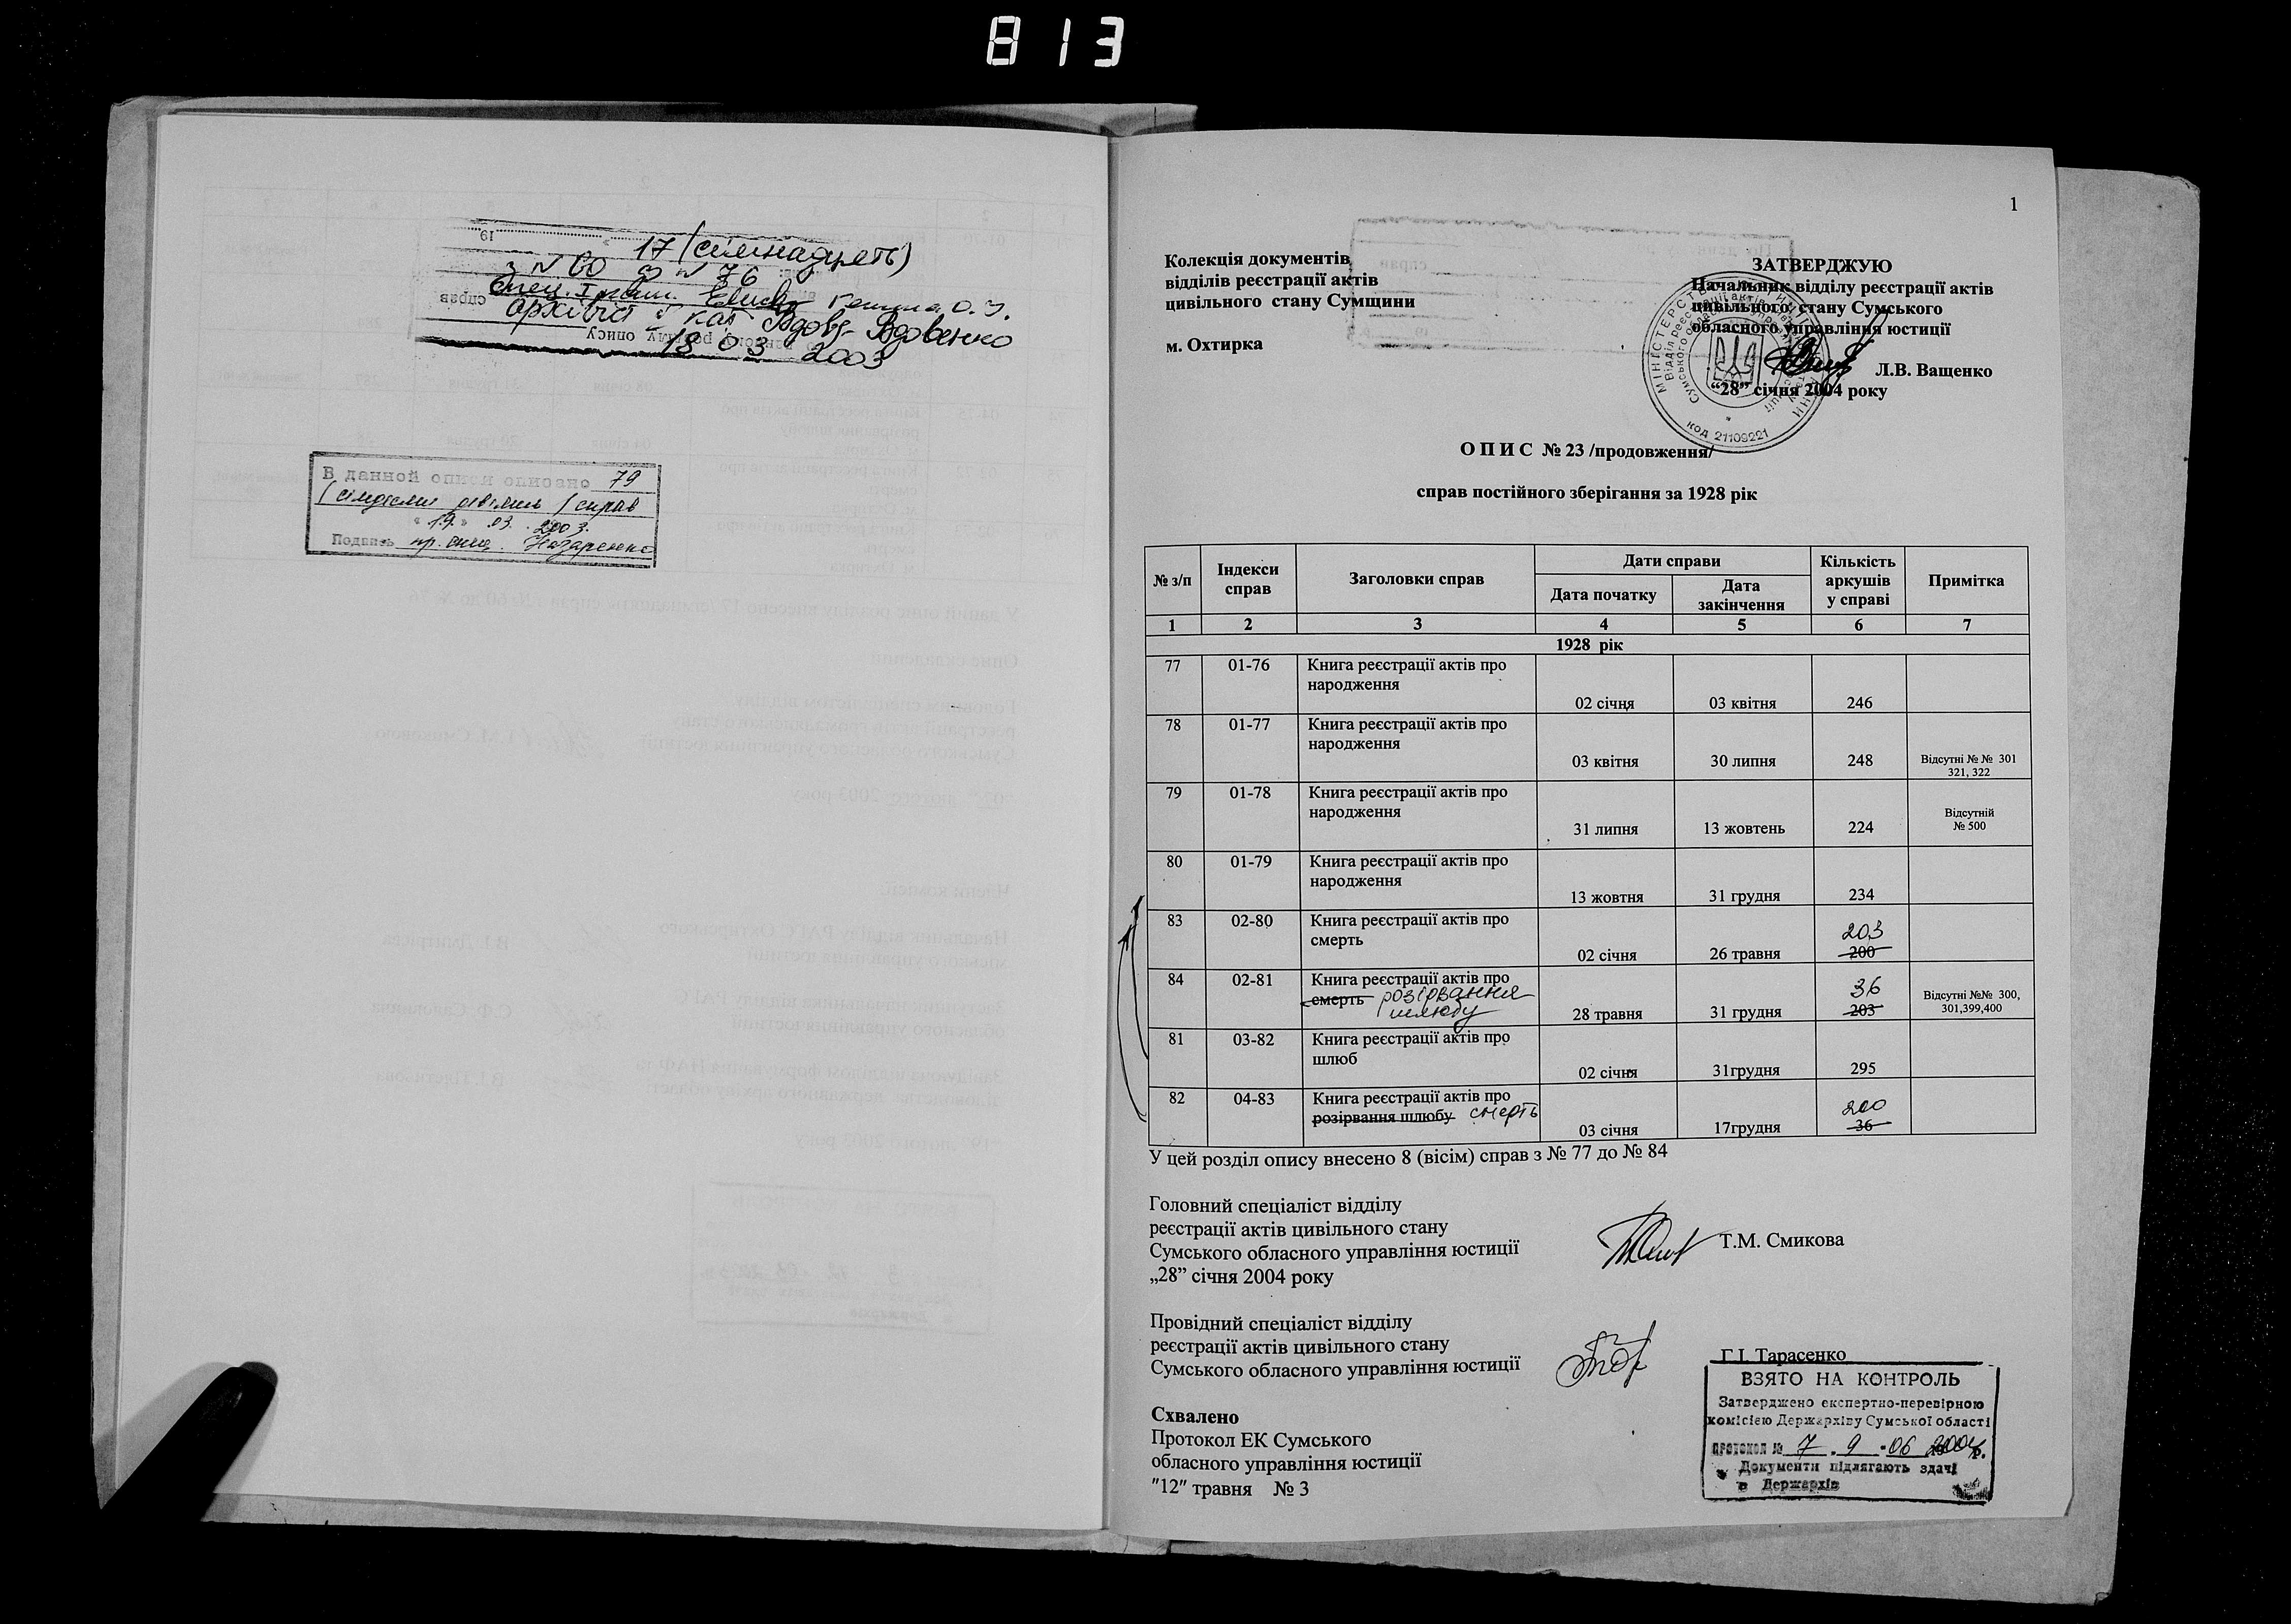 813
17 (сімнадцять)
з № 60 до № 76
архівіст
Вдовенко
18 03 2003
справ
опису
В данной описи описано 79
/сімдесят девять/ справ
"19" .03. 2003.
Подпись пр. спец. Назаренко
1
Колекція документів
відділів реєстрації актів
цивільного стану Сумщини
м. Охтирка
ЗАТВЕРДЖУЮ
Начальник відділу реєстрації актів
цивільного стану Сумського
обласного управління юстиції
Л.В. Ващенко
“28” січня 2004 року
код 21109221
О П И С № 23 /продовження/
справ постійного зберігання за 1928 рік
№ з/п Індекси справ Заголовки справ Дати справи Кількість аркушів у справі Примітка
Дата початку Дата закінчення
1 2 3 4 5 6 7
1928 рік
77 01-76 Книга реєстрації актів про
народження 02 січня 03 квітня 246
78 01-77 Книга реєстрації актів про
народження 03 квітня 30 липня 248 Відсутні № № 301
321, 322
79 01-78 Книга реєстрації актів про
народження 31 липня 13 жовтень 224 Відсутній
№ 500
80 01-79 Книга реєстрації актів про
народження 13 жовтня 31 грудня 234
83 02-80 Книга реєстрації актів про
смерть 02 січня 26 травня 203
200
84 02-81 Книга реєстрації актів про
смерть розірвання
шлюбу 28 травня 31 грудня 36
203 Відсутні №№ 300,
301,399,400
81 03-82 Книга реєстрації актів про
шлюб 02 січня 31грудня 295
82 04-83 Книга реєстрації актів про
розірвання шлюбу смерть 03 січня 17грудня 200
36
У цей розділ опису внесено 8 (вісім) справ з № 77 до № 84
Головний спеціаліст відділу
реєстрації актів цивільного стану
Сумського обласного управління юстиції Т.М. Смикова
„28” січня 2004 року
Провідний спеціаліст відділу
реєстрації актів цивільного стану
Сумського обласного управління юстиції Г.І. Тарасенко
Схвалено
Протокол ЕК Сумського
обласного управління юстиції
"12" травня № 3
ВЗЯТО НА КОНТРОЛЬ
Затверджено експертно-перевірною
комісією Держархіву Сумської області
протокол № 7 . 9 . 06 2004р.
Документи підлягають здачі
в Держархів